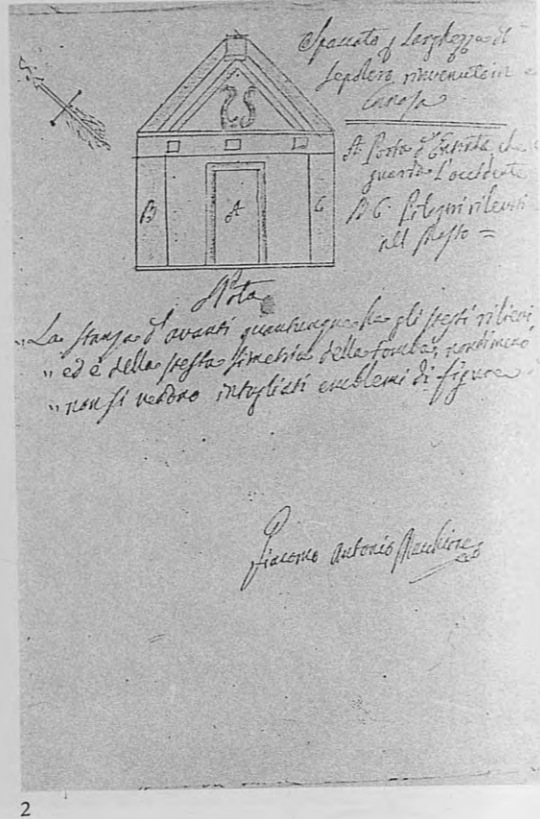 Spaccato p Larghezza di
Sepolcro rinvenuto in
Canosa
A Porta d'Entrata che
guarda l'occidente
B C Pilastri rilevati
nel Masso =
B
A
C
Nota
"La stanza d'avanti quantunque ha gli stessi rilievi
" ed è della stessa simetria della tomba, nondimeno
" non si vedono intagliati emblemi di figure
Giacomo Antonio Macchione
2